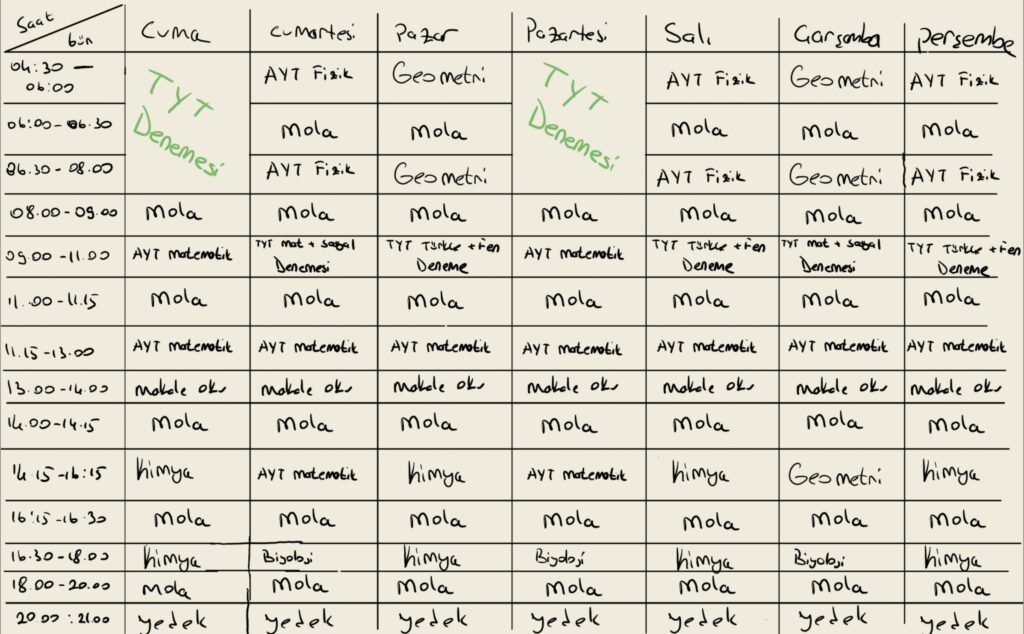 Saat
Gün
Cuma Cumartesi Pazar Pazartesi Salı Çarşamba Perşembe
04:30 — 06:00 TYT Denemesi AYT Fizik Geometri TYT Denemesi AYT Fizik Geometri AYT Fizik
06:00 - 06.30 Mola Mola Mola Mola Mola
06.30 - 08.00 AYT Fizik Geometri AYT Fizik Geometri AYT Fizik
08.00 - 09.00 Mola Mola Mola Mola Mola Mola Mola
09.00 - 11.00 AYT matematik TYT mat + sosyal Denemesi TYT Türkçe + Fen Deneme AYT matematik TYT Türkçe + Fen Deneme TYT mat + sosyal Denemesi TYT Türkçe + Fen Deneme
11.00 - 11.15 Mola Mola Mola Mola Mola Mola Mola
11.15 - 13.00 AYT matematik AYT matematik AYT matematik AYT matematik AYT matematik AYT matematik AYT matematik
13.00 - 14.00 makale oku makale oku makale oku makale oku makale oku makale oku makale oku
14.00 - 14.15 Mola Mola Mola Mola Mola Mola Mola
14.15 - 16:15 Kimya AYT matematik Kimya AYT matematik Kimya Geometri Kimya
16:15 - 16.30 Mola Mola Mola Mola Mola Mola Mola
16.30 - 18.00 Kimya Biyoloji Kimya Biyoloji Kimya Biyoloji Kimya
18.00 - 20.00 Mola Mola Mola Mola Mola Mola Mola
20.00 : 21.00 yedek yedek yedek yedek yedek yedek yedek